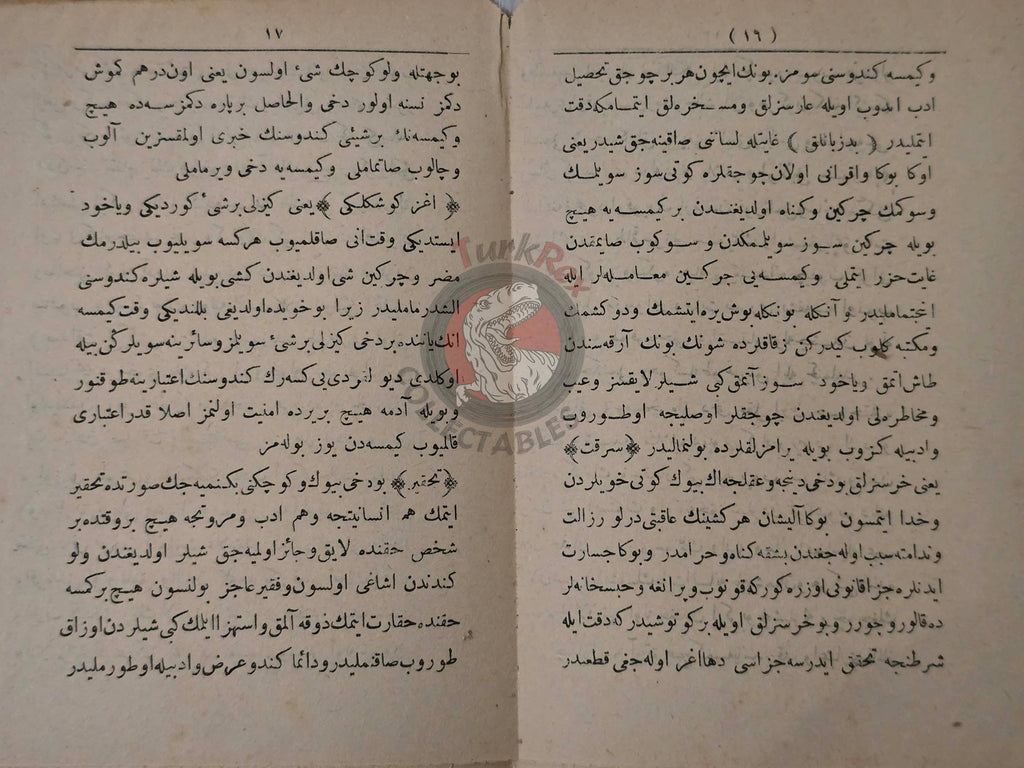 (١٦)
وكيمسه كندوسنی سومز. بونك ايچون هر بر چوجق تحصيل
ادب ايدوب اويله عارسزلق ومسخره‌لق ايتمامكه دقت
ايتمليدر (بدزبانلق) غايتله لساننی صاقينه‌جق شيدر يعنی
اوكا بوكا واقرانی اولان چوجقلره كوتی سوز سويلمك
وسوكمك چركين وكناه اولديغندن بر كيمسه‌يه هيچ
بويله چركين سوز سويلمكدن و سوكوب صايمقدن
غايت حزر ايتملی وكيمسه‌يی چركين معامله‌لر ايله
آنكله بونكله بوش يره ايتشمك ودوكشمك
ومكتبه كلوب كيدركن زقاقلرده شونك بونك آرقه‌سندن
طاش آتمق وياخود سوز آتمق كبی شيلر لايقسز وعيب
ومخاطره‌لی اولديغندن چوجقلر اوصليجه اوطوروب
وادبيله كزوب بويله يرامزلقلرده بولنماليدر ﴿سرقت﴾
يعنی خرسزلق بودخی دينجه وعقلجه اك بيوك كوتی خويلردن
وخدا ايتمسون بوكا آليشان هر كشينك عاقبتی درلو رزالت
وندامته سبب اوله‌جغندن بشقه كناه وحرامدر وبوكا جسارت
ايدنلره جزا قانونی اوزره كوركه قونوب وپرانغه وحبسخانه‌لر
ده قالور وچورر وبو خرسزلق اويله بر كوتو شيدر كه دقت ايله
شرطنجه تحقق ايدرسه جزاسی دها اغر اوله‌جغی قطعيدر
١٧
بوجهتله ولو كوچك شیء اولسون يعنی اون درهم كموش
دكمز نسنه اولور دخی والحاصل بر پاره دكمزسه‌ده هيچ
وكيمسه‌نك بر شيئی كندوسنك خبری اولمقسزين آلوب
وچالوب صاتماملی وكيمسه‌يه دخی ويرماملی
﴿اغز كوشكلكی﴾ يعنی كيزلی بر شیء كورديكی وياخود
ايستديكی وقت انی صاقلميوب هر كسه سويليوب بيلدرمك
مضر وچركين شی اولديغندن كشی بويله شيلره كندوسنی
الشدرماملیدر زيرا بو خويده اولديغی بللنديكی وقت كيمسه
انك ياننده بر دخی كيزلی بر شیء سويلمز وسائرينه سويلركن بيله
اوكلدی ديو لقردی‌يی كسه‌رك كندوسنك اعتبارينه طوقنور
وبويله آدمه هيچ بر يرده امنيت اولنمز اصلا قدر اعتباری
قالميوب كيمسه‌دن يوز بوله‌مز
﴿تحقير﴾ بودخی بيوك وكوچكنی بكنميه‌جك صورتده تحقير
ايتمك هم انسانيتجه وهم ادب ومروتجه هيچ بر وقتده بر
شخص حقنده لايق وجائز اولميه‌جق شيلر اولديغندن ولو
كندندن اشاغی اولسون وفقير عاجز بولنسون هيچ بر كمسه
حقنده حقارت ايتمك ذوقه آلمق واستهزا ايلمك كبی شيلردن اوزاق
طوروب صاقنمليدر ودائما كندو عرض وادبيله اوطورمليدر
TurkRex
COLLECTABLES